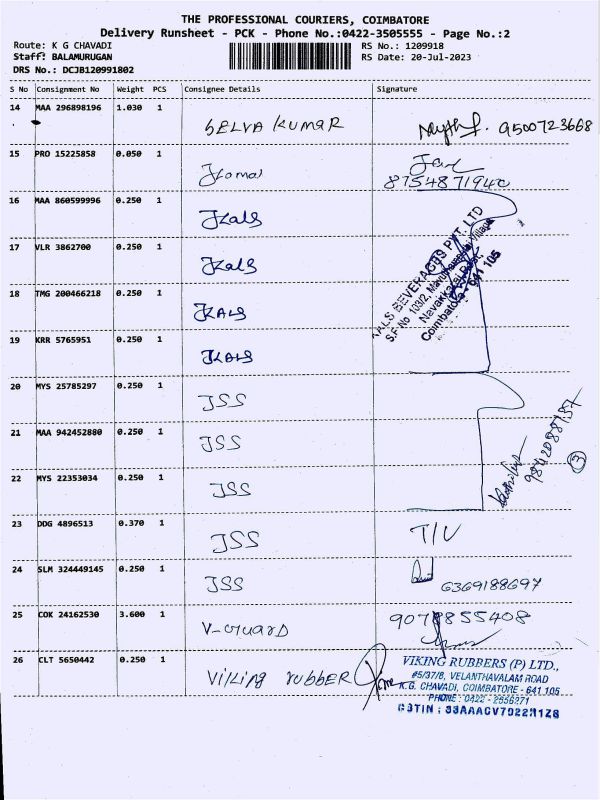 THE PROFESSIONAL COURIERS, COIMBATORE
Delivery Runsheet - PCK - Phone No.:0422-3505555 - Page No.:2
Route: K G CHAVADI RS No.: 1209918
Staff: BALAMURUGAN RS Date: 20-Jul-2023
DRS No.: DCJB120991802
S No Consignment No Weight PCS Consignee Details Signature
14 MAA 296898196 1.030 1 SELVA KUMAR 9500723668
15 PRO 15225858 0.050 1
8754871940
16 MAA 860599996 0.250 1 Kals
17 VLR 3862700 0.250 1 Kals
18 TMG 200466218 0.250 1 KALS
19 KRR 5765951 0.250 1 KALS
KALS BEVERAGES PVT. LTD
S.F No 103/2,
Coimbatore - 641 105
20 MYS 25785297 0.250 1 JSS
21 MAA 942452880 0.250 1 JSS
22 MYS 22353034 0.250 1 JSS
3
23 DDG 4896513 0.370 1 JSS T/U
24 SLM 324449145 0.250 1 JSS 6369188697
25 COK 24162530 3.600 1 V-GUARD 9078855408
26 CLT 5650442 0.250 1 Viking rubber
VIKING RUBBERS (P) LTD.,
#5/37/8, VELANTHAVALAM ROAD
K.G. CHAVADI, COIMBATORE - 641 105
PHONE : 0422 - 2656271